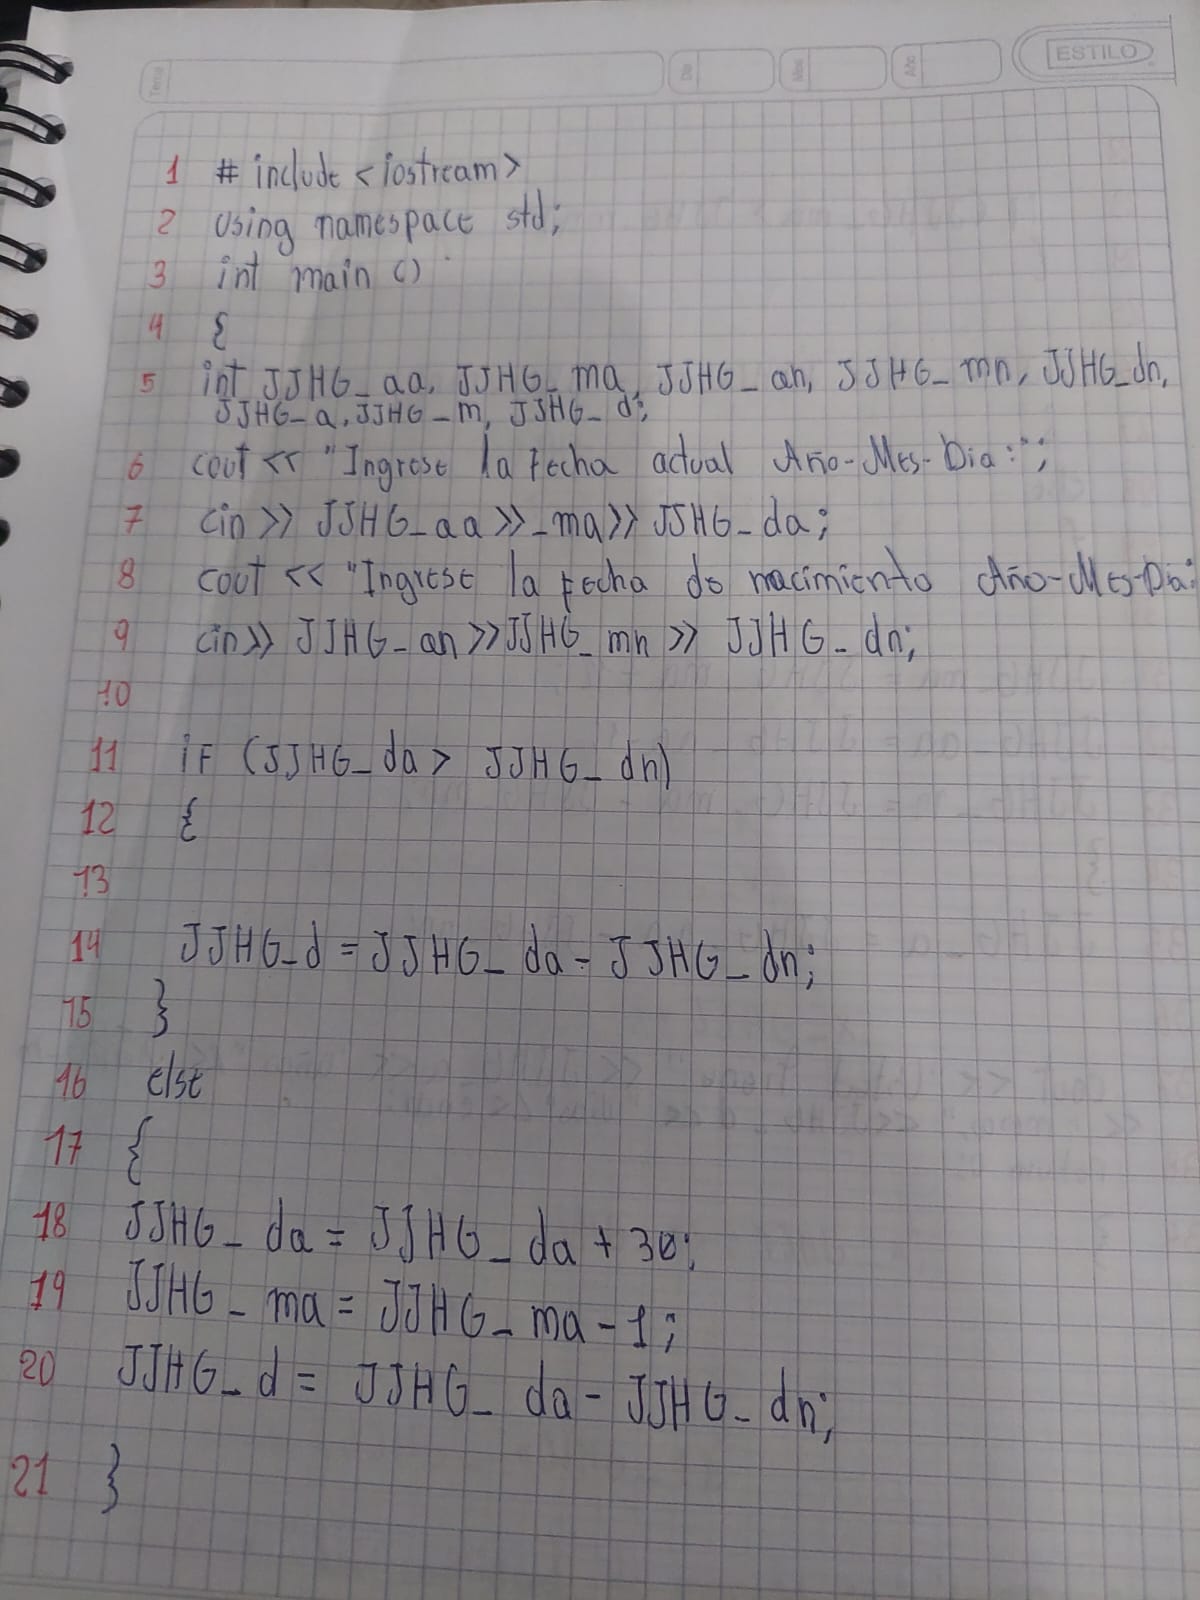 ESTILO
Tema
Día
Mes
Año
1 # include <iostream>
2 using namespace std;
3 int main ()
4 {
5 int JJHG_aa, JJHG_ma, JJHG_an, JJHG_mn, JJHG_dn,
JJHG_a, JJHG_m, JJHG_d;
6 cout << "Ingrese la Fecha actual Año-Mes-Dia:";
7 cin >> JJHG_aa >>_ma>> JJHG_da;
8 cout << "Ingrese la Fecha de nacimiento Año-Mes-Dia:
9 cin>> JJHG_an >>JJHG_mn >> JJHG_dn;
10
11 if (JJHG_da > JJHG_dn)
12 {
13
14 JJHG_d = JJHG_da - JJHG_dn;
15 }
16 else
17 {
18 JJHG_da = JJHG_da + 30;
19 JJHG_ma = JJHG_ma - 1;
20 JJHG_d = JJHG_da - JJHG_dn;
21 }